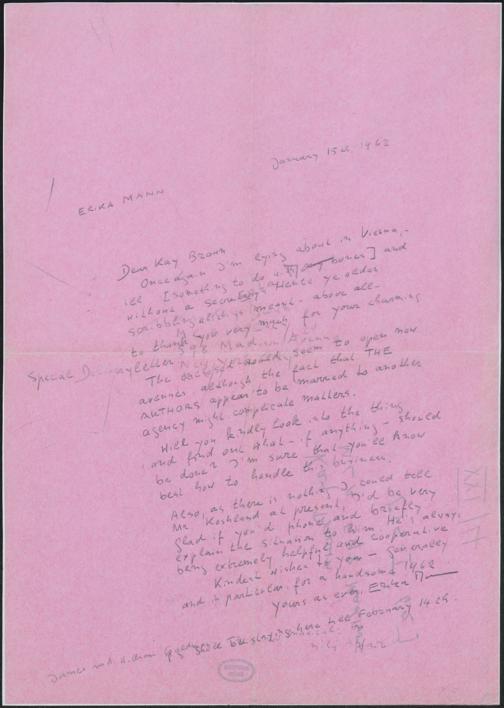 January 15th, 1962
ERIKA MANN
Dear Kay Brown
Once again I'm lying about in Vienna,-
ill [something to do with my bones] and
without a secretary. Hence ye olde
scribbling which is meant - above all-
to thank you very much for your charming
letter.
Special Delivery
The enclosed would seem to open new
avenues although the fact that THE
AUTHORS appear to be married to another
agency might complicate matters.
Will you kindly look into the thing
and find out what - if anything - should
be done? I'm sure that you'll know
best how to handle this business.
Also, as there is nothing I could tell
Mr. Koshland at present, I'd be very
glad if you'd phone and briefly
explain the situation to him. He's always
being extremely helpful and cooperative
Kindest wishes to you - generally
and in particular for a handsome 1962
Yours as ever, Erika M
here till February 14th.